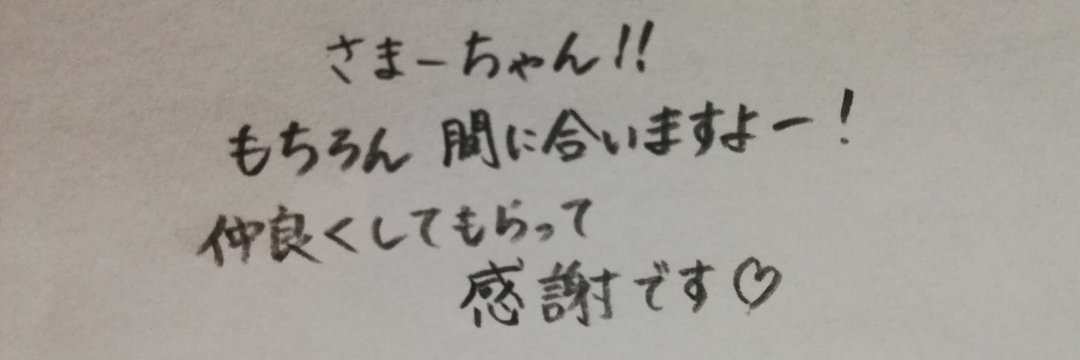 さまーちゃん!!
もちろん 間に合いますよー!
仲良くしてもらって
感謝です♡